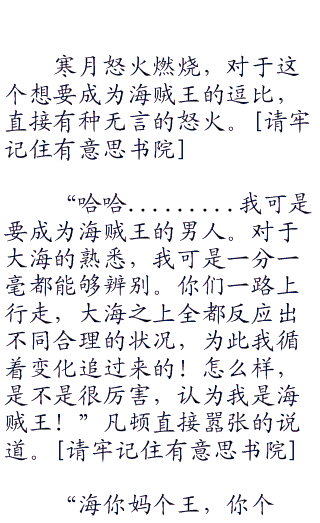 寒月怒火燃烧，对于这
个想要成为海贼王的逗比，
直接有种无言的怒火。[请牢
记住有意思书院]
“哈哈.........我可是
要成为海贼王的男人。对于
大海的熟悉，我可是一分一
毫都能够辨别。你们一路上
行走，大海之上全都反应出
不同合理的状况，为此我循
着变化追过来的！怎么样，
是不是很厉害，认为我是海
贼王！”凡顿直接嚣张的说
道。[请牢记住有意思书院]
“海你妈个王，你个